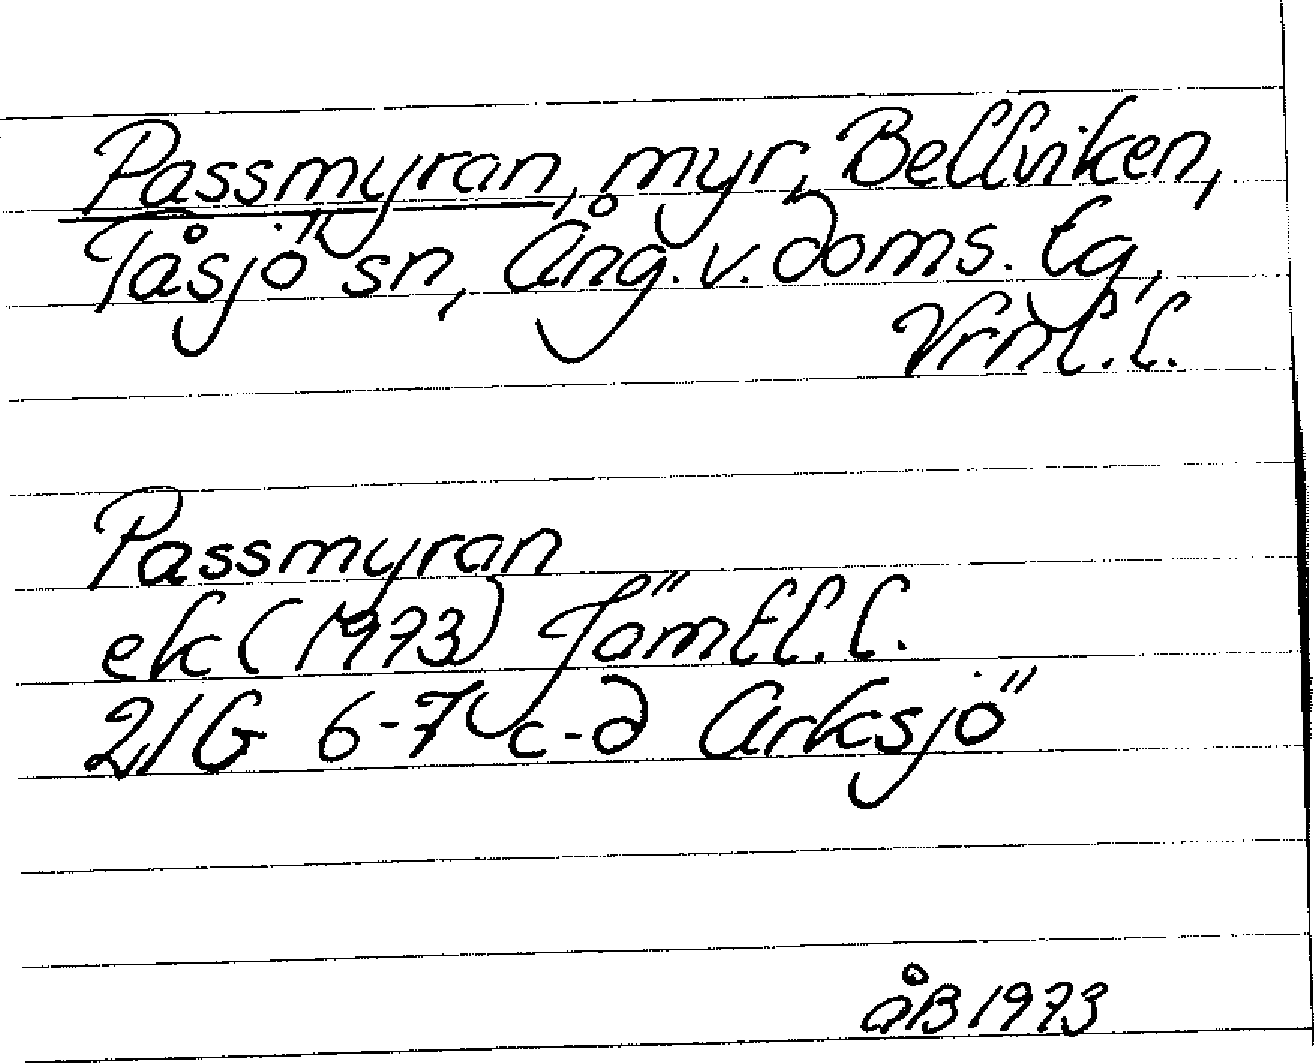 Passmyran, myr, Bellviken,
Tåsjö sn, Ång. v. doms. tg,
Vrnl. l.
Passmyran
ek (1973) Jämtl. l.
21G 6-7 c-d Arksjö
åB 1973